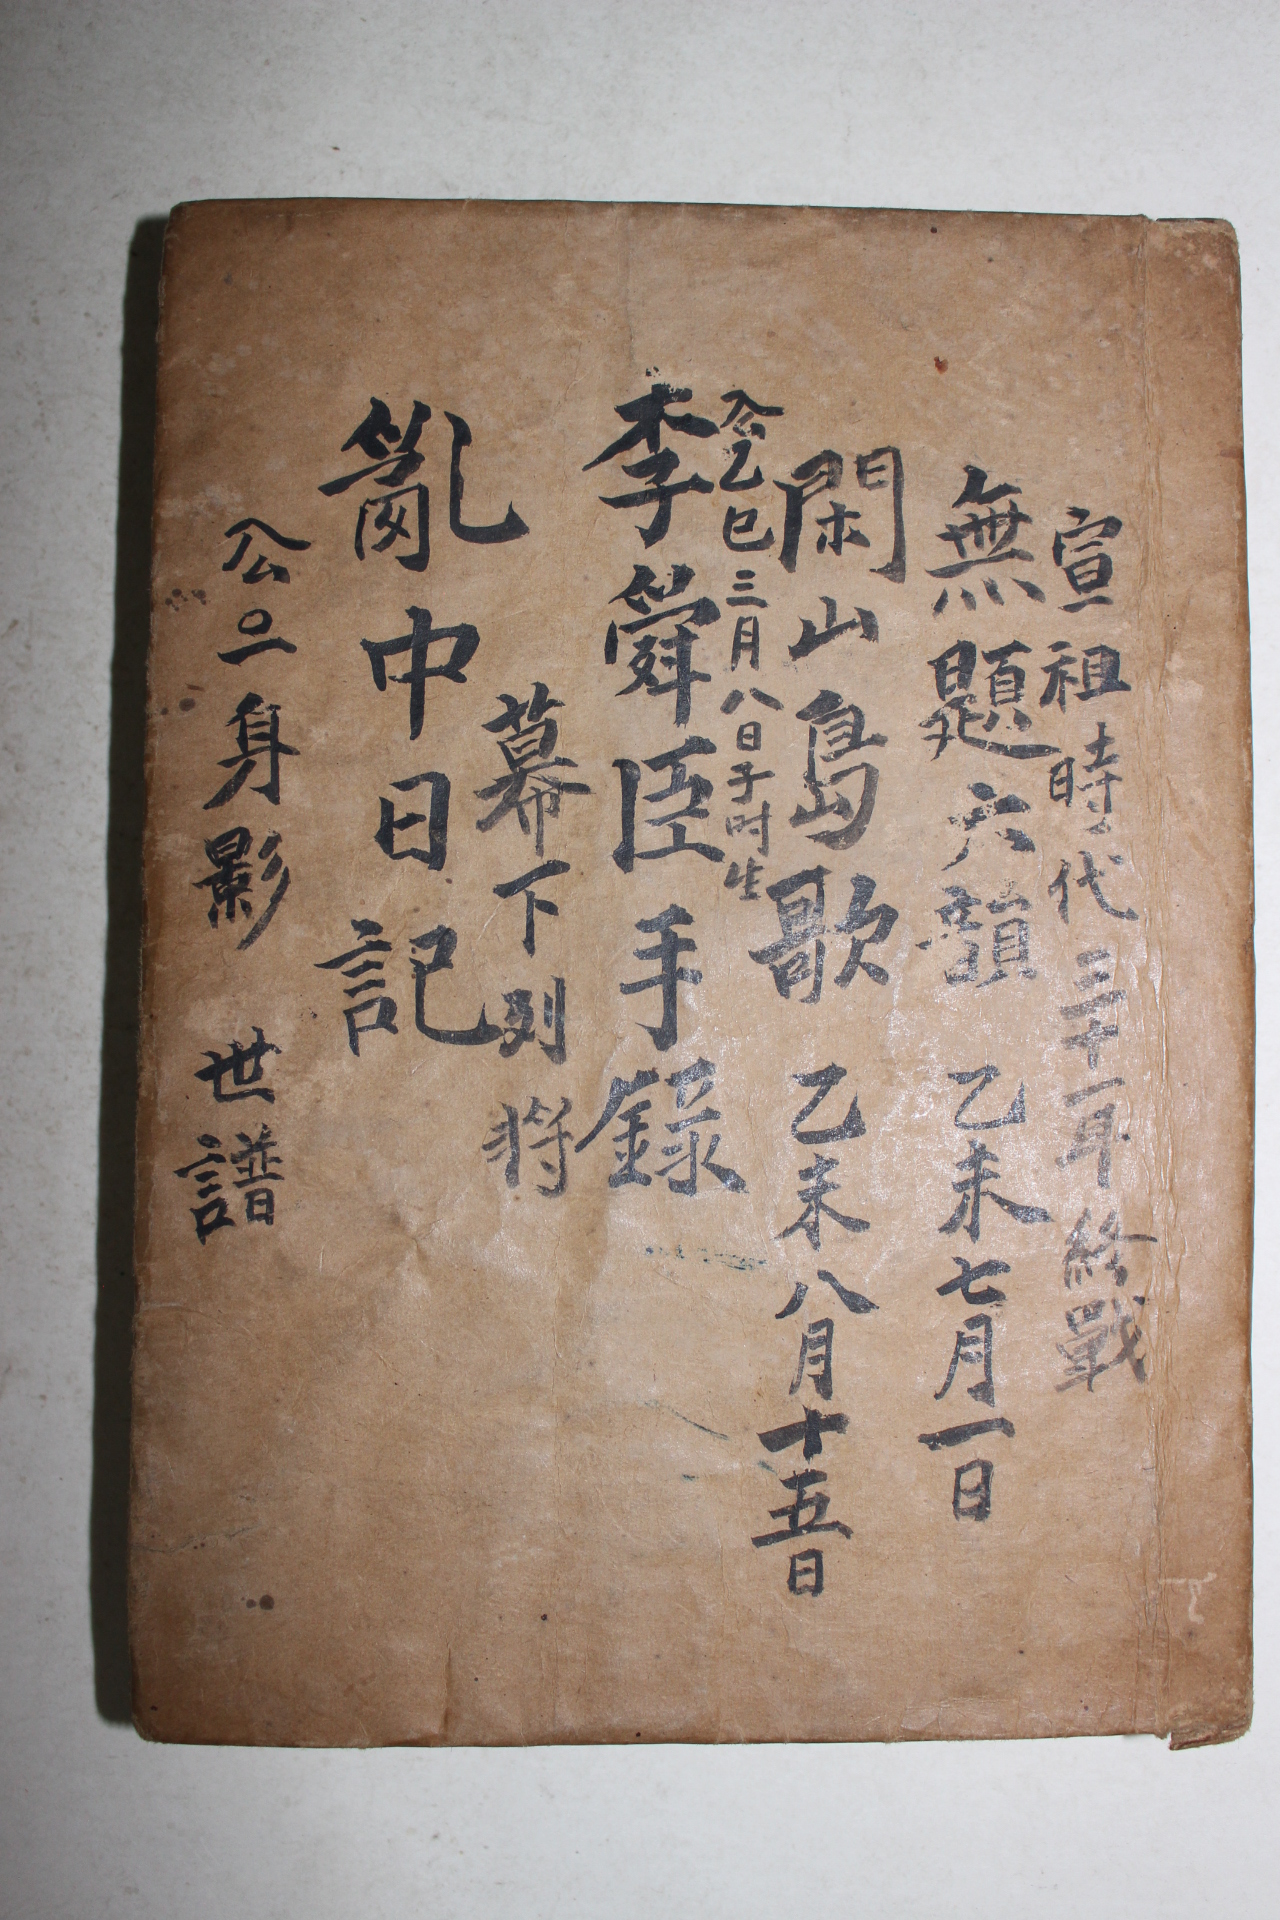 宣祖時代三十一年終戰
無題六韻 乙未七月一日
閑山島歌 乙未八月十五日
公乙巳三月八日子时生
李舜臣手錄
幕下列将
亂中日記
公의身影 世譜